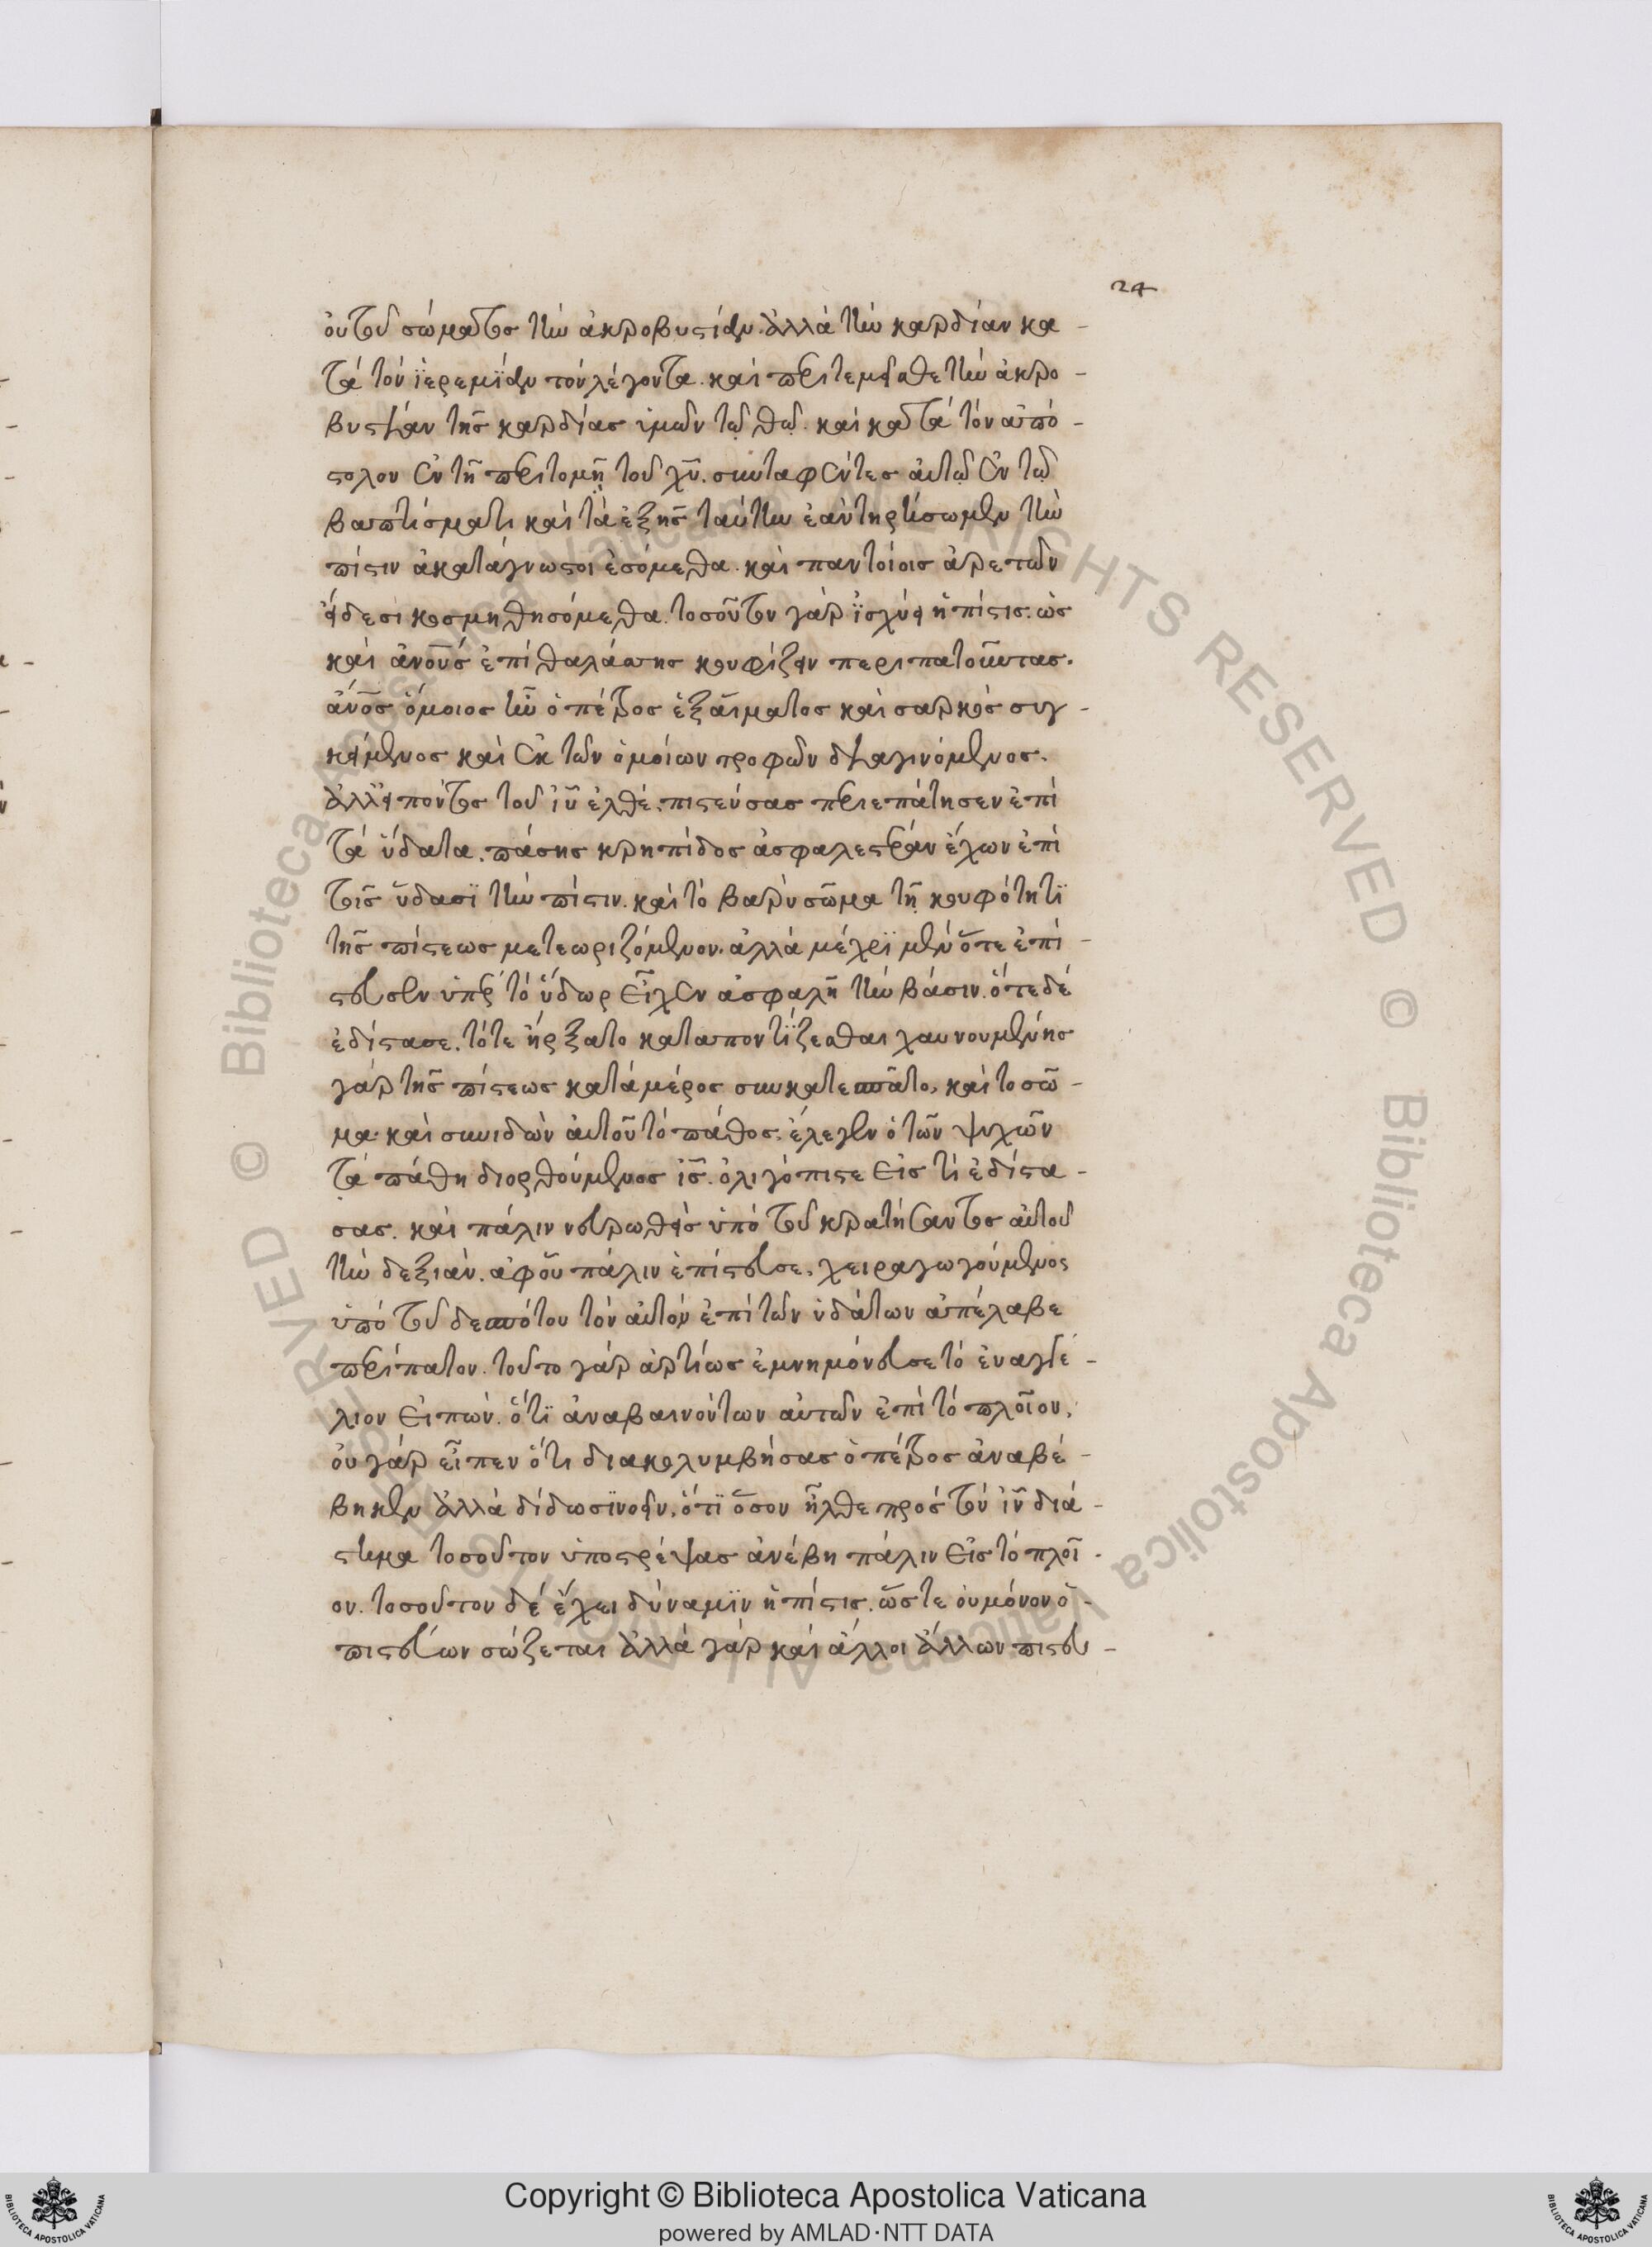 24
οὐ τοῦ σώματος τὴν ἀκροβυστίαν. ἀλλὰ τὴν καρδίαν κα-
τὰ τὸν ϊερεμίαν τὸν λέγοντα. καὶ περιτεμεῖσθε τὴν ἀκρο-
βυστίαν τῆς καρδίας ὑμῶν τῷ θω̅. καὶ κατὰ τὸν ἀπό-
στολον ἐν τῇ περιτομῇ τοῦ χυ̅. συνταφέντες αὐτῷ ἐν τῷ
βαπτίσματι καὶ τὰ ἑξῆς ταύτην ἐὰν τηρήσωμεν τὴν
πίστιν ἀκατάγνωστοι ἐσόμεθα. καὶ παντοίοις ἀρετῶν
εἴδεσι κοσμηθησόμεθα. τοσοῦτον γὰρ ϊσχύει ἡ πίστις. ὡς
καὶ ἀνο̅υς ἐπὶ θαλάσσης κουφίζειν περιπατοῦντας.
ἄνο̅ς ὅμοιος ἦν ὁ πέτρος ἐξ αἵματος καὶ σαρκὸς συγ-
κείμενος καὶ ἐκ τῶν ὁμοίων τροφῶν διαγινόμενος.
ἀλλ' εἰπόντος τοῦ ιυ̅ ἐλθέ. πιστεύσας περιεπάτησεν ἐπὶ
τὰ ὕδατα. πάσης κρηπίδος ἀσφαλεστέραν ἔχων ἐπὶ
τοῖς ὕδασϊ τὴν πίστιν. καὶ τὸ βαρὺ σῶμα τῇ κουφότητϊ
τῆς πίστεως μετεωριζόμενον. ἀλλὰ μέχρϊ μὲν ὅτε ἐπί-
στευσεν ὑπὲρ τὸ ὕδωρ εἶχεν ἀσφαλῆ τὴν βάσιν. ὅτε δὲ
ἐδίστασε. τότε ἤρξατο καταποντίζεσθαι χαυνουμένης
γὰρ τῆς πίστεως κατὰ μέρος συγκατεσπᾶτο, καὶ το σῶ-
μα καὶ συνιδὼν αὐτοῦ τὸ πάθος. ἔλεγεν ὁ τῶν ψυχῶν
τὰ πάθη διορθούμενος ις̅. ὀλιγόπιστε εἰς τί ἐδίστα-
σας. καὶ πάλιν νευρωθεὶς ὑπὸ τοῦ κρατήσαντος αὐτοῦ
τὴν δεξιάν. ἀφοῦ πάλιν ἐπίστευσε, χειραγωγούμενος
ὑπὸ τοῦ δεσπότου τὸν αὐτὸν ἐπὶ τῶν ὑδάτων ἀπέλαβε
περίπατον. τοῦτο γὰρ ἀρτίως ἐμνημόνευσε τὸ ἐυαγγέ-
λιον εἰπών. ὅτϊ ἀναβαινόντων αὐτῶν ἐπὶ τὸ πλοῖον,
οὐ γὰρ εἶπεν ὅτι διακολυμβήσας ὁ πέτρος ἀναβέ-
βηκεν ἀλλὰ δίδωσϊ νοεῖν, ὅτϊ ὅσον ἦλθε πρὸς τὸν ιν̅ διά-
στημα τοσοῦτον ὑποστρέψας ἀνέβη πάλιν εἰς τὸ πλοῖ-
ον. τοσοῦτον δὲ ἔχει δύναμϊν ἡ πίστις. ὥστε οὐ μόνον ὁ
πιστεύων σώζεται ἀλλὰ γὰρ καὶ ἄλλοι ἄλλων πιστευ-
Copyright © Biblioteca Apostolica Vaticana
powered by AMLAD·NTT DATA